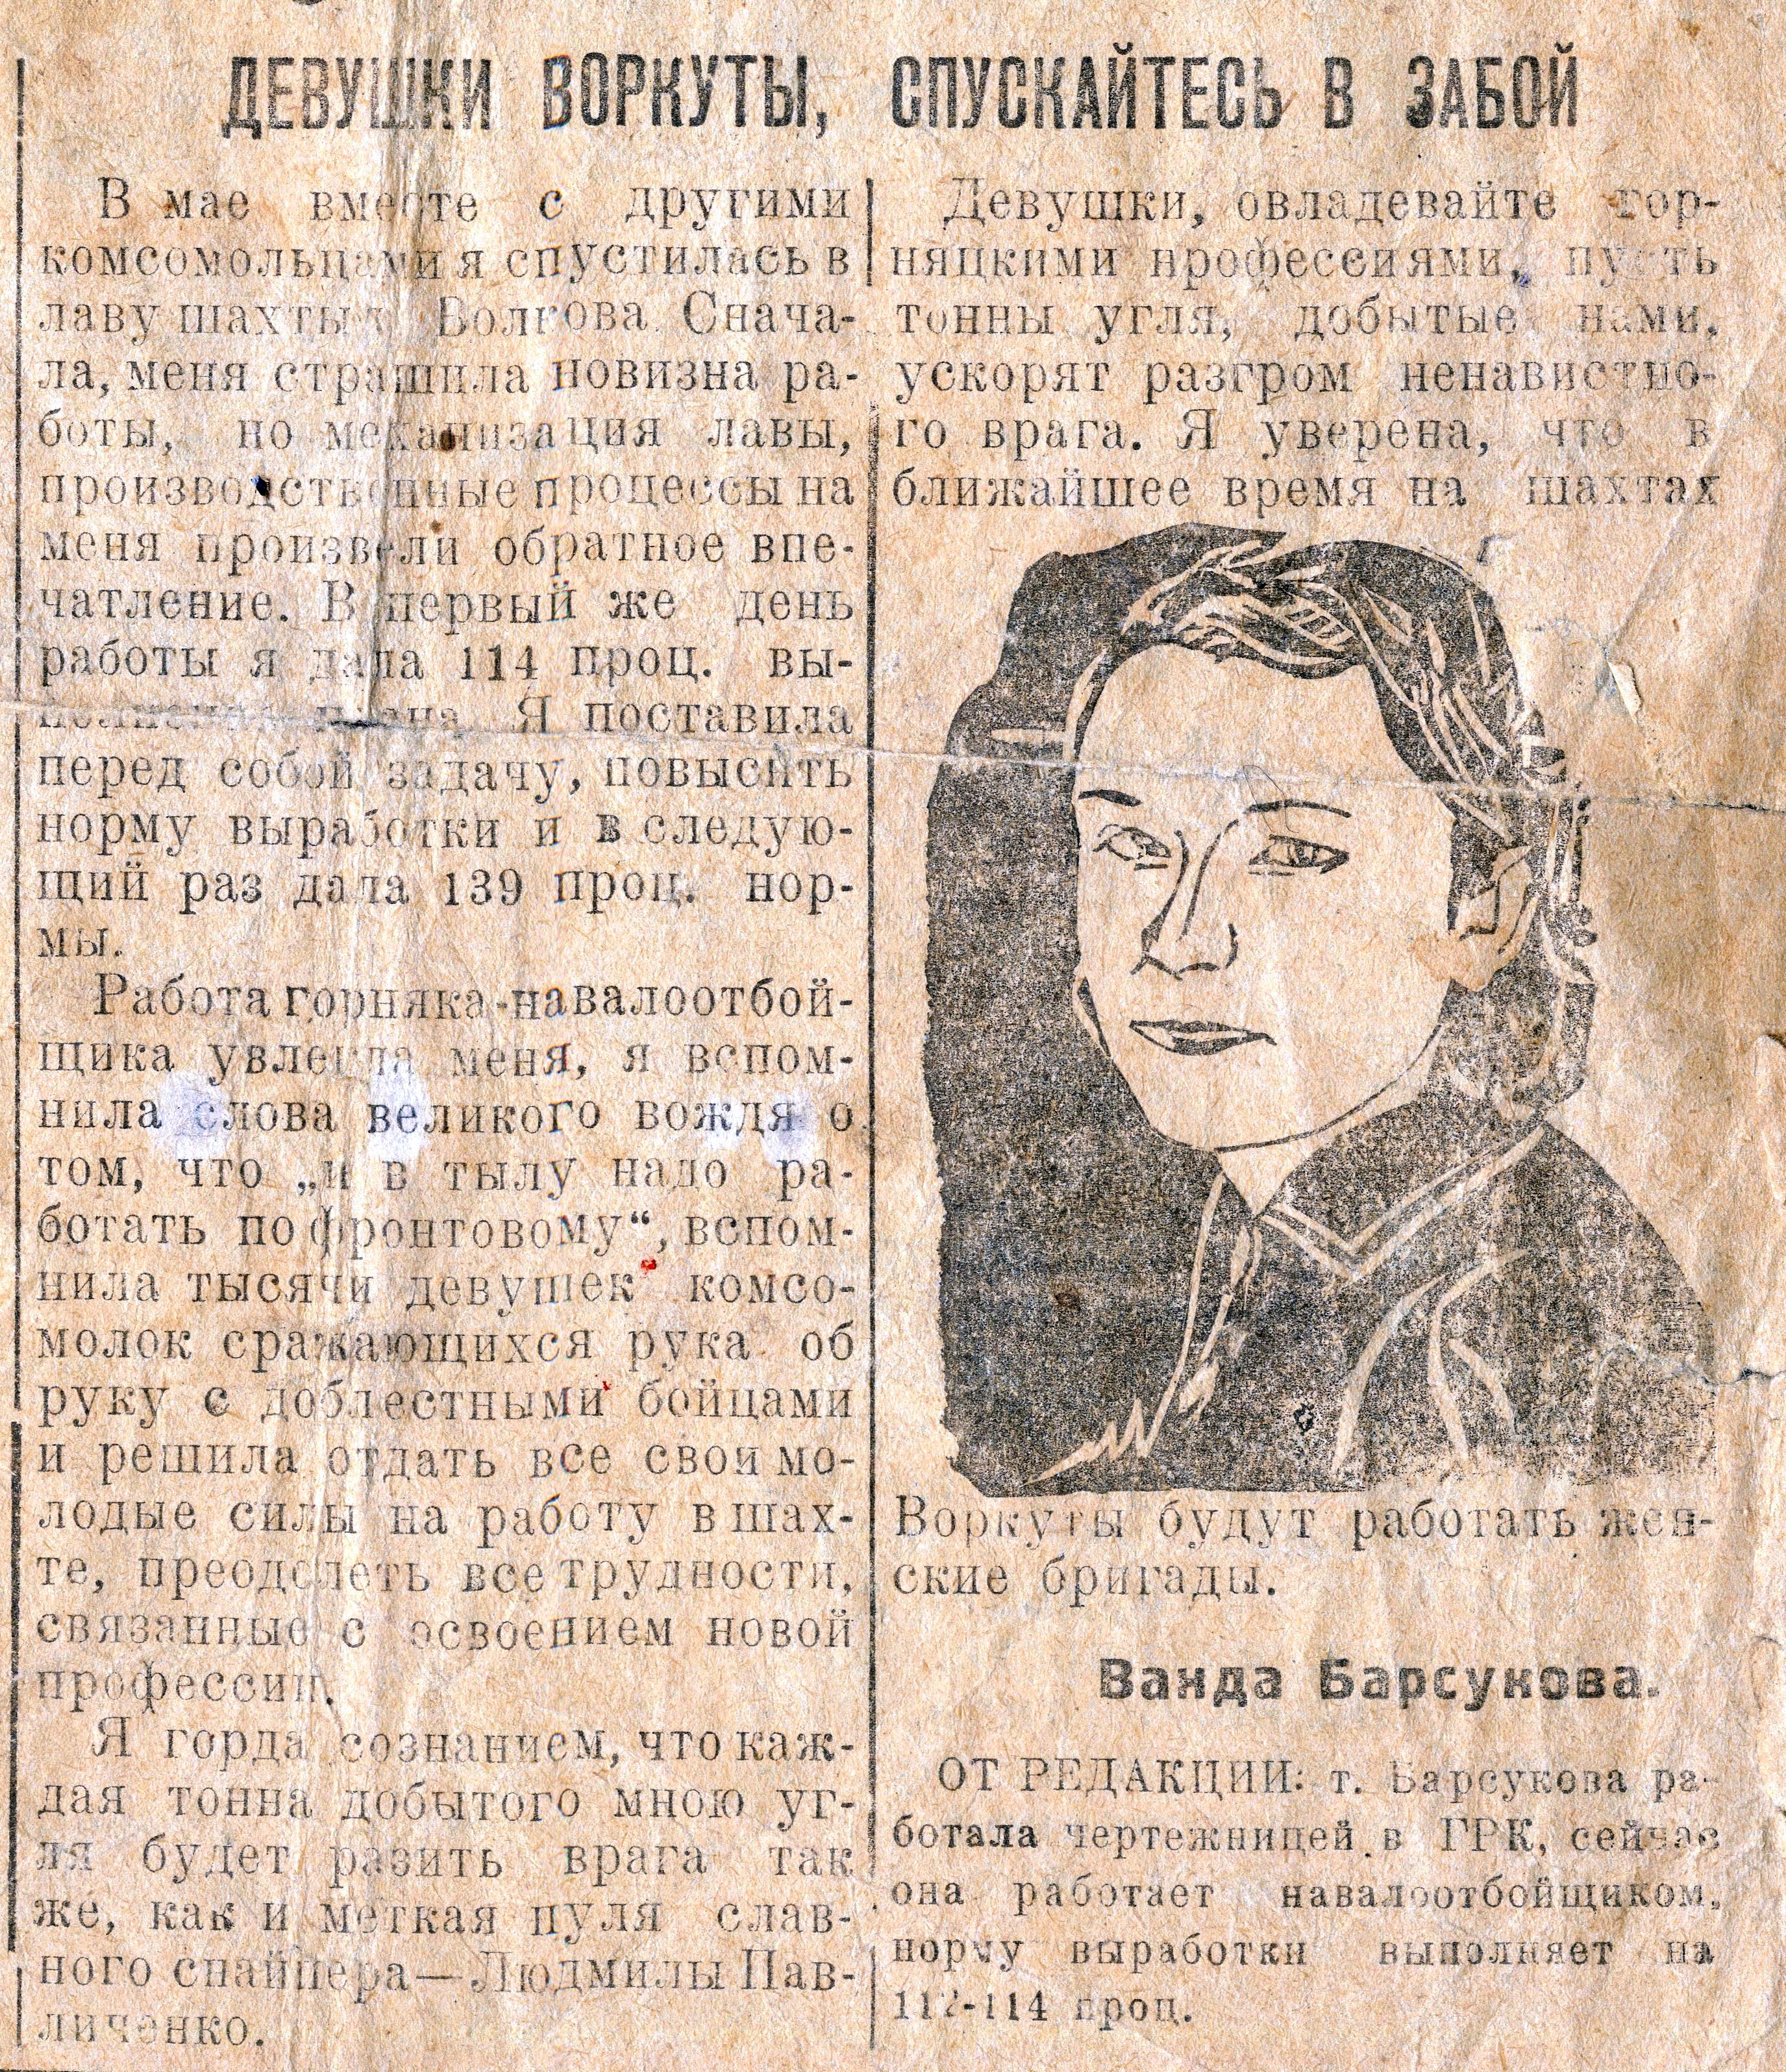 ДЕВУШКИ ВОРКУТЫ, СПУСКАЙТЕСЬ В ЗАБОЙ
В мае вместе с другими
комсомольцами я спустилась в
лаву шахты т. Волкова. Снача-
ла, меня страшила новизна ра-
боты, но механизация лавы,
производственные процессы на
меня произвели обратное впе-
чатление. В первый же день
работы я дала 114 проц. вы-
полнения плана. Я поставила
перед собой задачу, повысить
норму выработки и в следую-
щий раз дала 139 проц. нор-
мы.
Работа горняка-навалоотбой-
щика увлекла меня, я вспом-
нила слова великого вождя о
том, что „и в тылу надо ра-
ботать по фронтовому“, вспом-
нила тысячи девушек комсо-
молок сражающихся рука об
руку с доблестными бойцами
и решила отдать все свои мо-
лодые силы на работу в шах-
те, преодолеть все трудности,
связанные с освоением новой
профессии.
Я горда сознанием, что каж-
дая тонна добытого мною уг-
ля будет разить врага так
же, как и меткая пуля слав-
ного снайпера—Людмилы Пав-
личенко.
Девушки, овладевайте гор-
няцкими профессиями, пусть
тонны угля, добытые нами,
ускорят разгром ненавистно-
го врага. Я уверена, что в
ближайшее время на шахтах
Воркуты будут работать жен-
ские бригады.
Ванда Барсукова.
ОТ РЕДАКЦИИ: т. Барсукова ра-
ботала чертежницей в ГРК, сейчас
она работает навалоотбойщиком,
норму выработки выполняет на
112-114 проц.